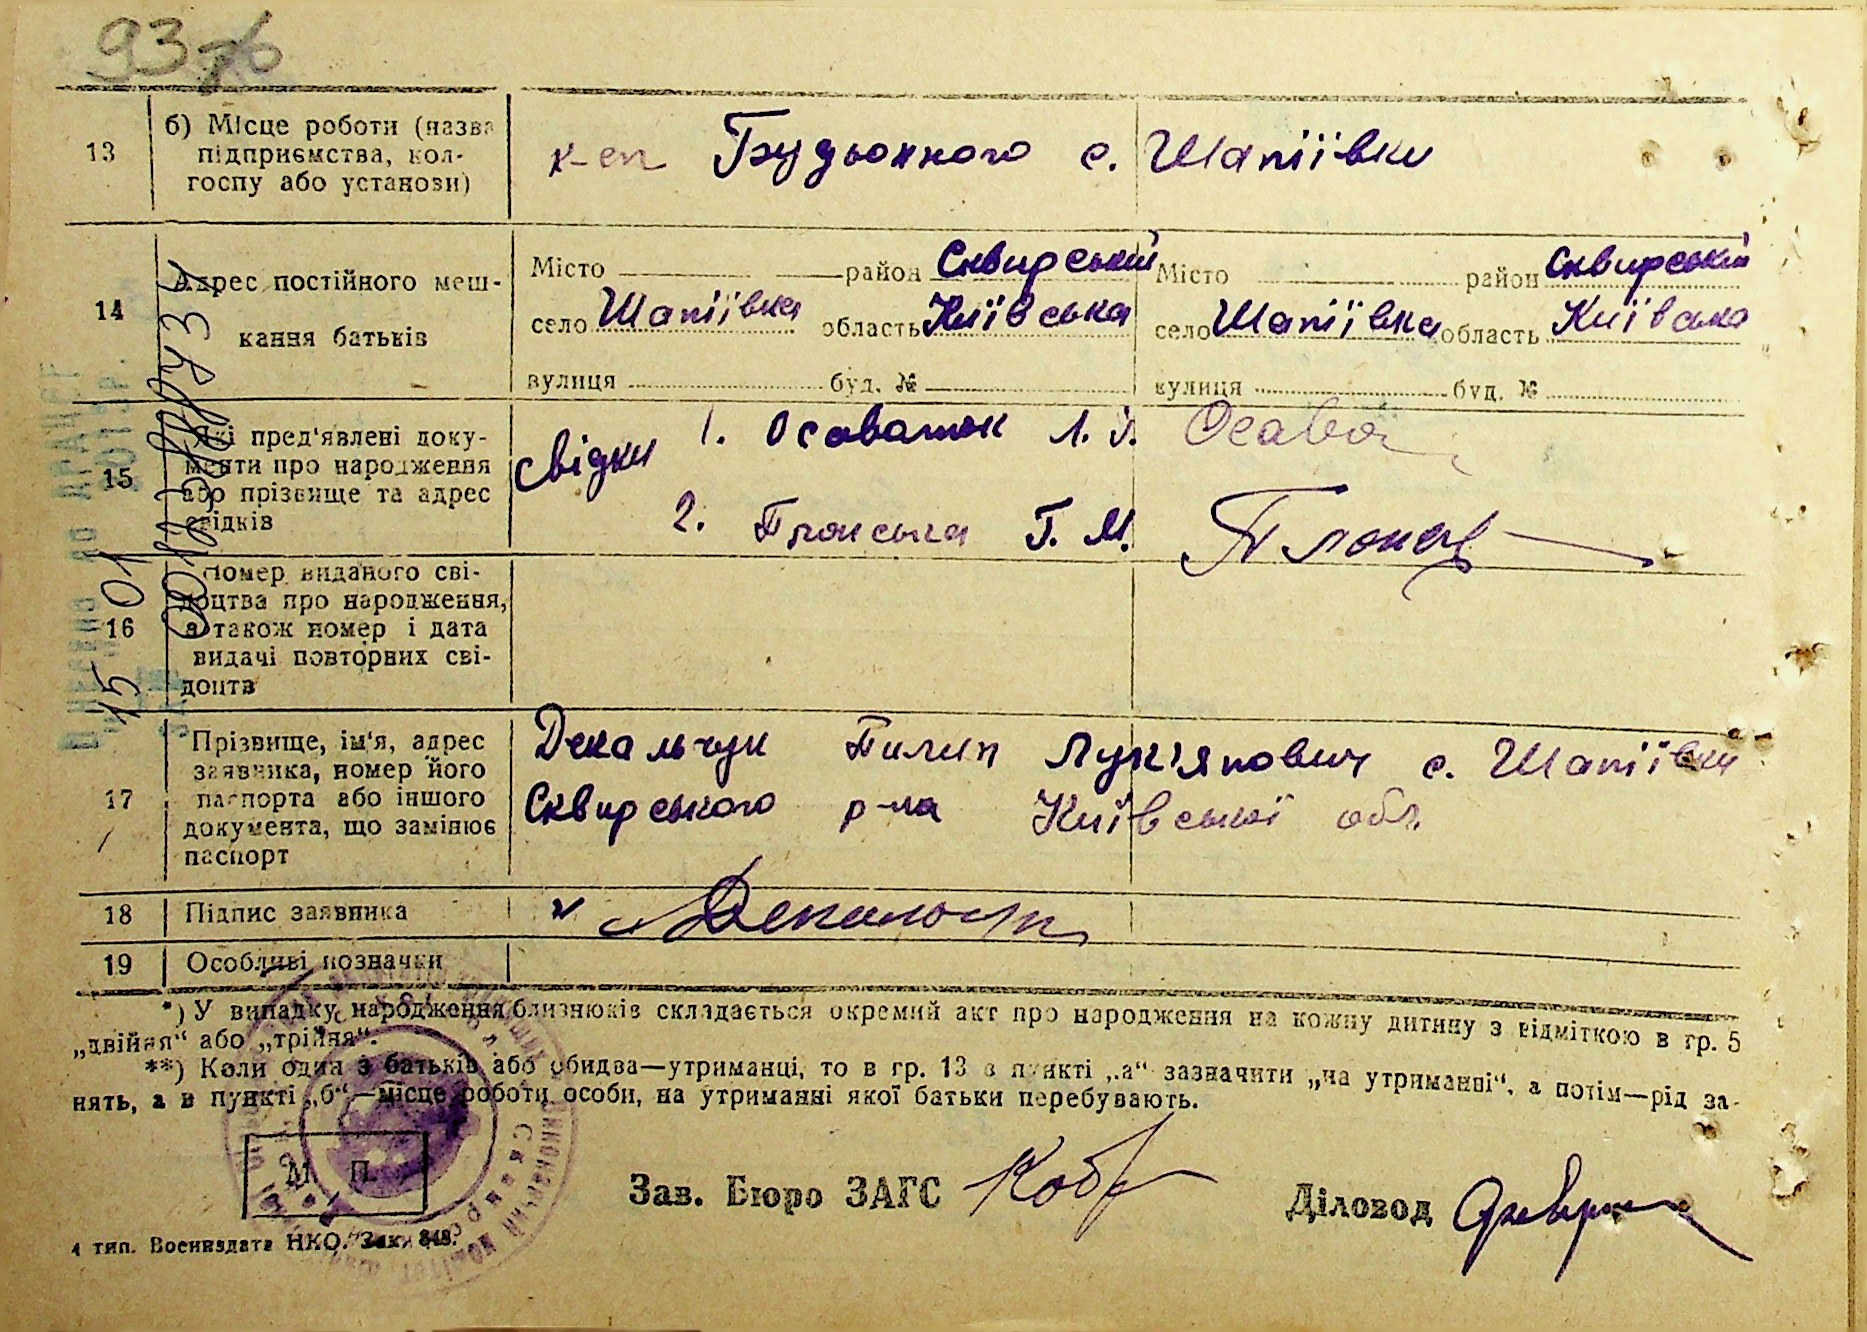 93
13 б) Місце роботи (назва
підприємства, кол-
госпу або установи)
к-сп Будьонного с. Шапіївки
14 Адрес постійного меш-
кання батьків
Місто район Сквирський Місто район Сквирський
село Шапіївка область Київська село Шапіївка область Київська
вулиця буд. № вулиця буд. №
15 Які пред'явлені доку-
менти про народження
або прізвище та адрес
свідків
Свідки 1. Осаватюк
2. Плонська Г. М.
16 Номер виданого сві-
доцтва про народження,
а також номер і дата
видачі повторних сві-
доцтв
17 Прізвище, ім'я, адрес
заявника, номер його
паспорта або іншого
документа, що замінює
паспорт
Декальчук Пилип Лук'янович с. Шапіївки
Сквирського р-на Київської обл.
18 Підпис заявника
19 Особливі позначки
*) У випадку народження близнюків складається окремий акт про народження на кожну дитину з відміткою в гр. 5
„двійня“ або „трійня“.
**) Коли один з батьків або обидва—утриманці, то в гр. 13 в пункті „а“ зазначити „на утриманні“, а потім—рід за-
нять, а в пункті „б“—місце роботи особи, на утриманні якої батьки перебувають.
М. П.
Зав. Бюро ЗАГС
Діловод
4 тип. Воениздата НКО. Зак. 848.